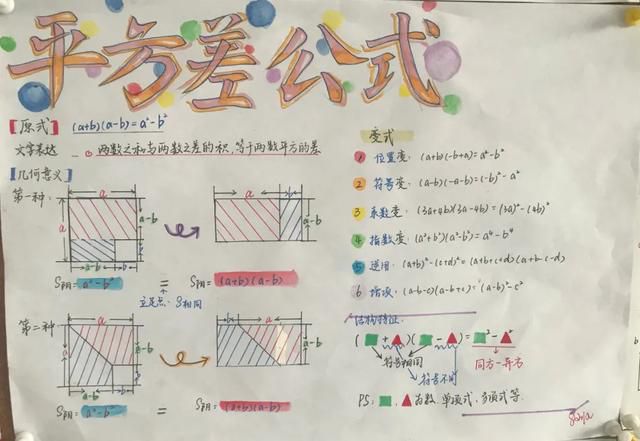 平方差公式
[原式] (a+b)(a-b)=a²-b²
文字表达 两数之和与两数之差的积,等于两数平方的差
[几何意义]
第一种:
a
a
a-b
b
a-b
b
a
b
a-b
S阴=a²-b² = S阴=(a+b)(a-b)
立足点:S相同
第二种
a
a
a-b
b
a-b
b
a
a-b
S阴=a²-b² = S阴=(a+b)(a-b)
变式
1 位置变: (a+b)(-b+a)=a²-b²
2 符号变: (a-b)(-a-b)=(-b)²-a²
3 系数变: (3a+4b)(3a-4b)=(3a)²-(4b)²
4 指数变: (a²+b²)(a²-b²)=a⁴-b⁴
5 逆用: (a+b)²-(c+d)²=(a+b+c+d)(a+b-c-d)
6 增项: (a-b-c)(a-b+c)=(a-b)²-c²
结构特征:
(■+▲)(■-▲)=■²-▲²
符号相同
符号不同
同方-异方
PS: ■,▲为数、单项式、多项式等.